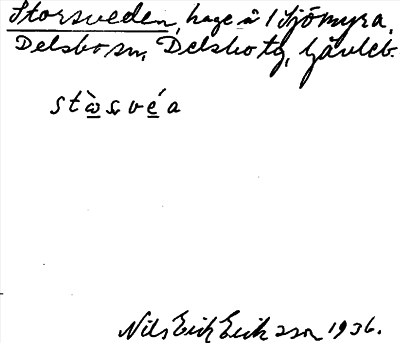 Storsveden, hage å 1 Sjömyra,
Delsbo sn, Delsbo tg, Gävleb.
stὼsvéa
Nils Erik Eriksson 1936.